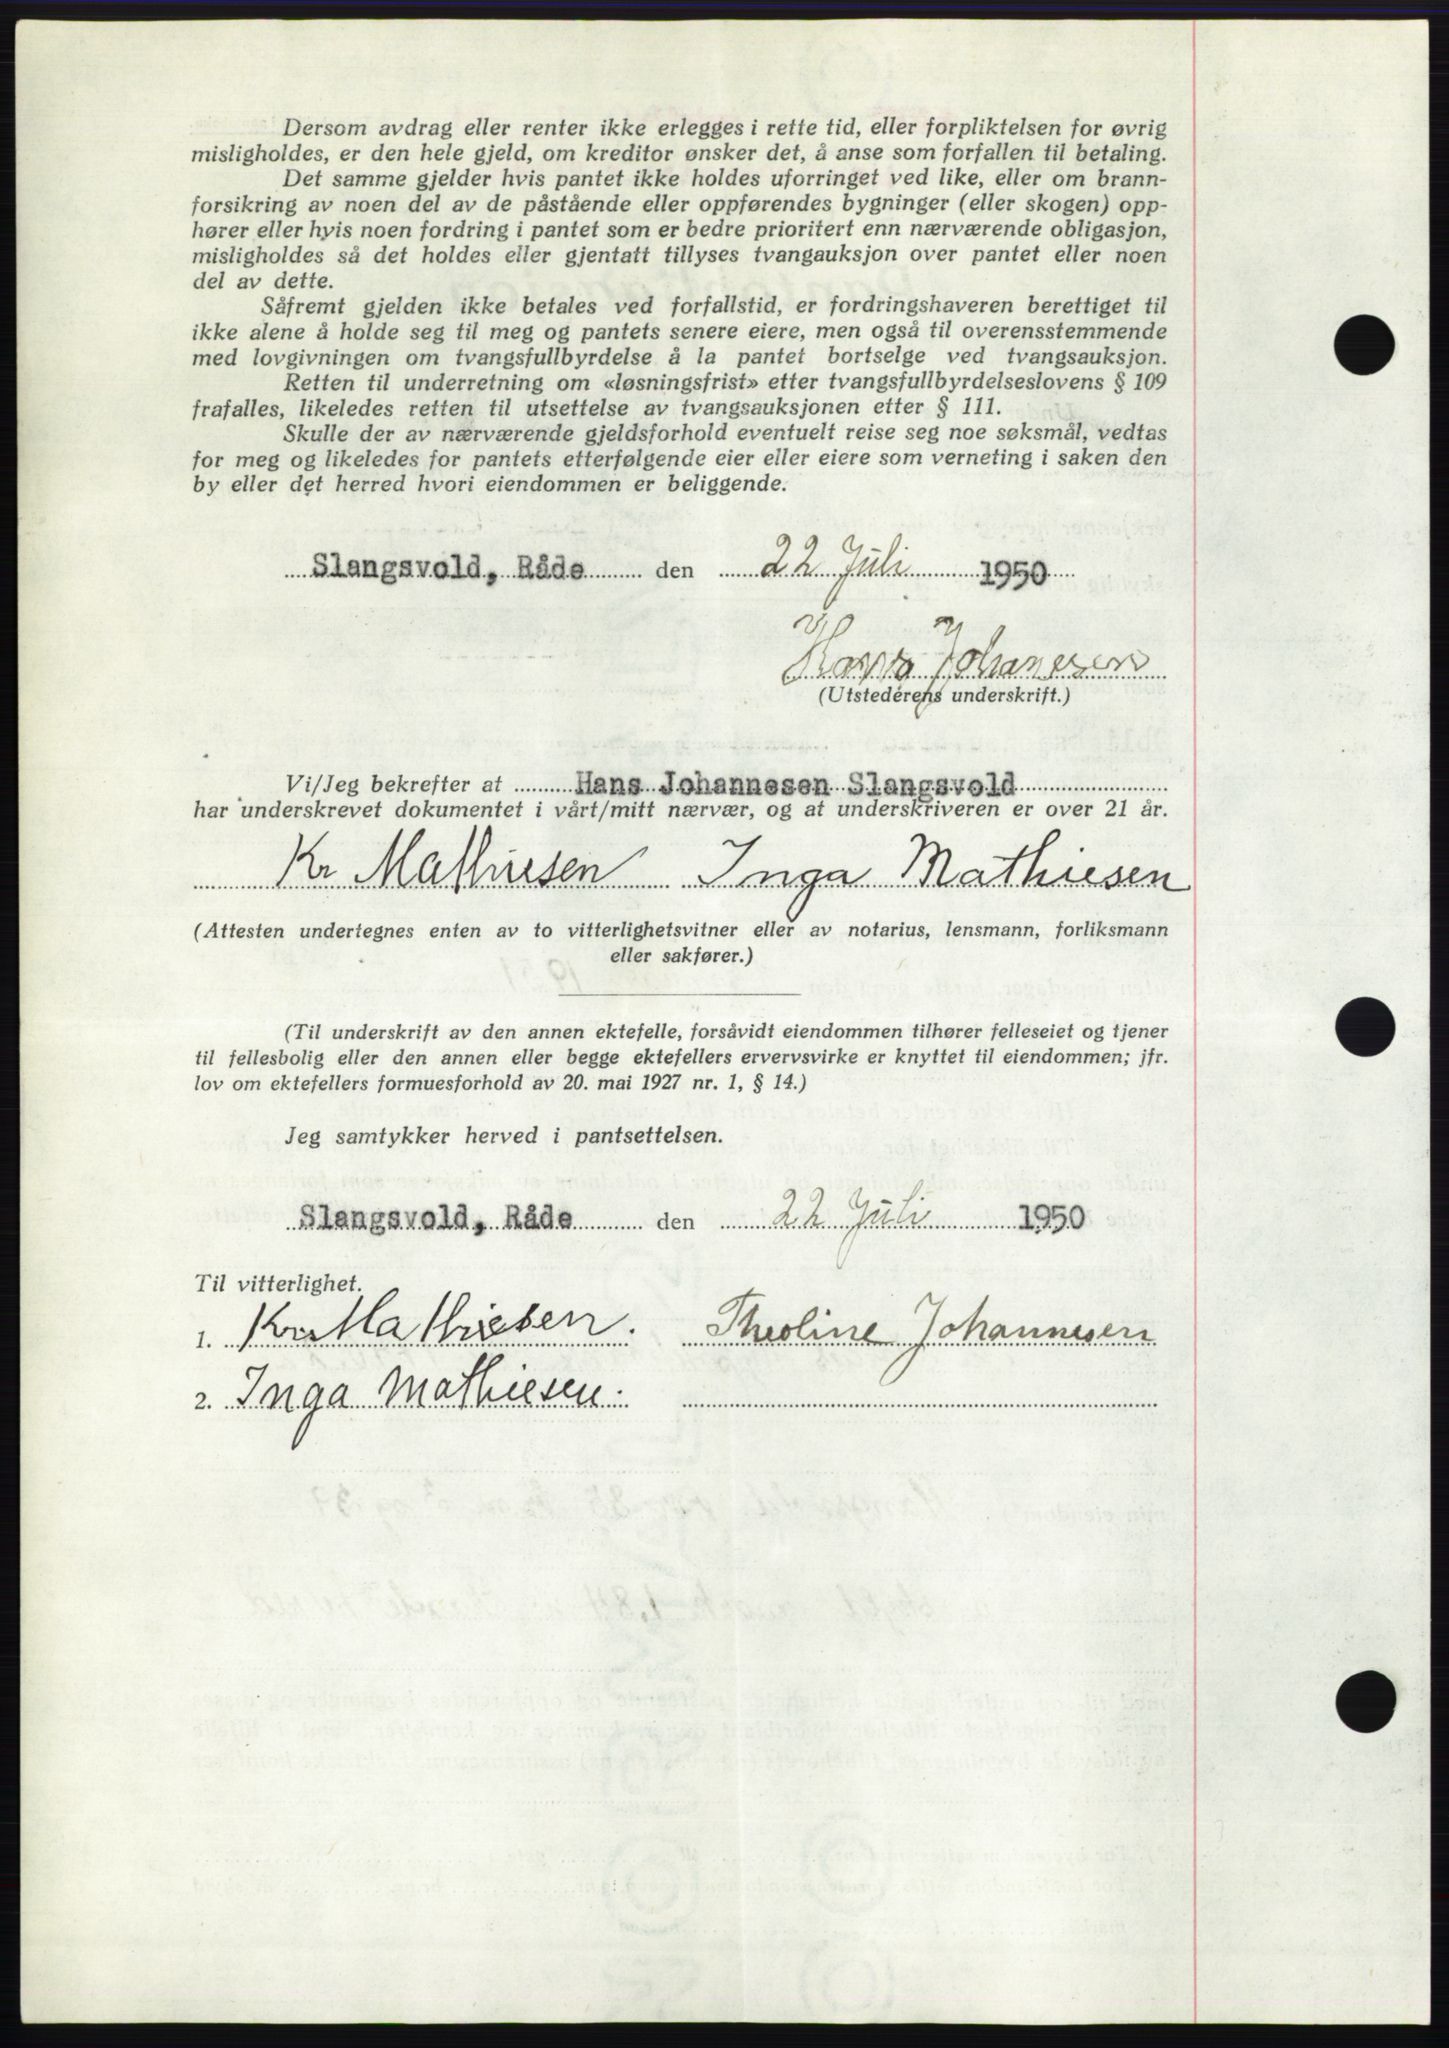 Dersom avdrag eller renter ikke erlegges i rette tid, eller forpliktelsen for øvrig
misligholdes, er den hele gjeld, om kreditor ønsker det, å anse som forfallen til betaling.
Det samme gjelder hvis pantet ikke holdes uforringet ved like, eller om brann-
forsikring av noen del av de påstående eller oppførendes bygninger (eller skogen) opp-
hører eller hvis noen fordring i pantet som er bedre prioritert enn nærværende obligasjon,
misligholdes så det holdes eller gjentatt tillyses tvangauksjon over pantet eller noen
del av dette.
Såfremt gjelden ikke betales ved forfallstid, er fordringshaveren berettiget til
ikke alene å holde seg til meg og pantets senere eiere, men også til overensstemmende
med lovgivningen om tvangsfullbyrdelse å la pantet bortselge ved tvangsauksjon.
Retten til underretning om «løsningsfrist» etter tvangsfullbyrdelseslovens § 109
frafalles, likeledes retten til utsettelse av tvangsauksjonen etter § 111.
Skulle der av nærværende gjeldsforhold eventuelt reise seg noe søksmål, vedtas
for meg og likeledes for pantets etterfølgende eier eller eiere som verneting i saken den
by eller det herred hvori eiendommen er beliggende.
Slangsvold, Råde den 22 Juli 1950
Hans Johannesen
(Utstederens underskrift.)
Vi/Jeg bekrefter at Hans Johannesen Slangsvold
har underskrevet dokumentet i vårt/mitt nærvær, og at underskriveren er over 21 år.
Kr Mathiesen Inga Mathiesen
(Attesten undertegnes enten av to vitterlighetsvitner eller av notarius, lensmann, forliksmann
eller sakfører.)
(Til underskrift av den annen ektefelle, forsåvidt eiendommen tilhører felleseiet og tjener
til fellesbolig eller den annen eller begge ektefellers ervervsvirke er knyttet til eiendommen; jfr.
lov om ektefellers formuesforhold av 20. mai 1927 nr. 1, § 14.)
Jeg samtykker herved i pantsettelsen.
Slangsvold, Råde den 22 Juli 1950
Til vitterlighet.
1. Kr Mathiesen. Theoline Johannesen
2. Inga Mathiesen.